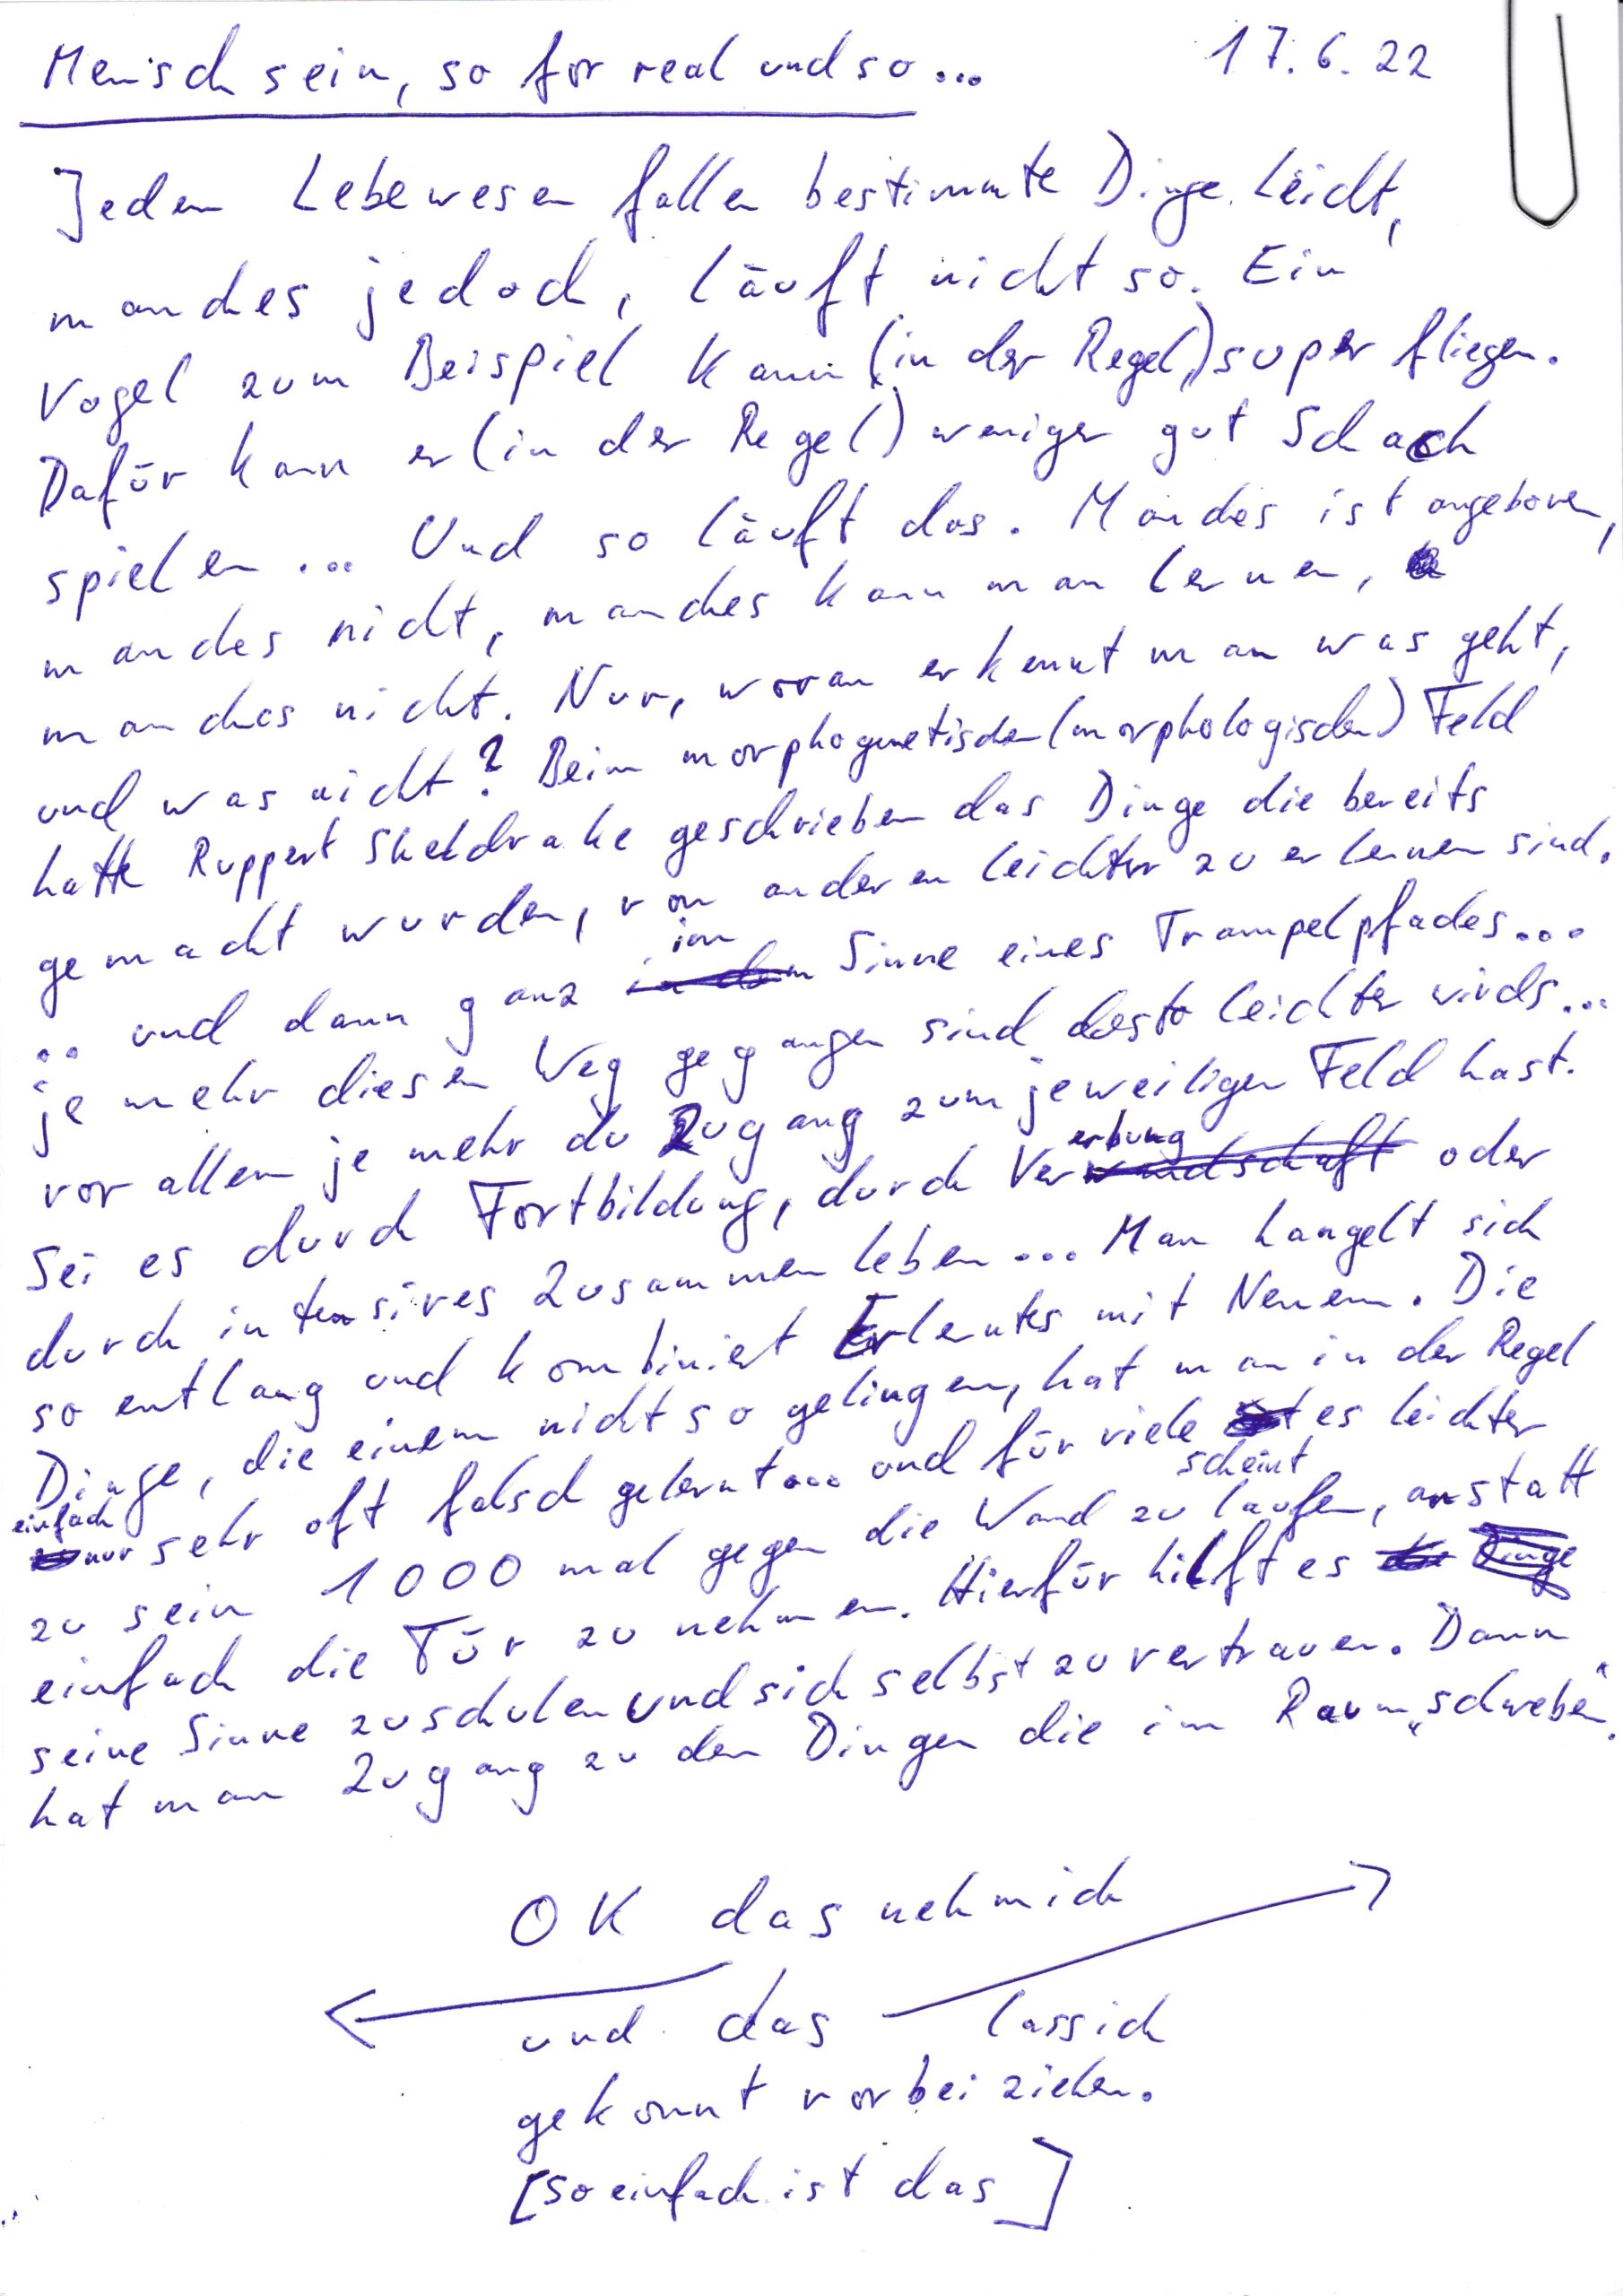 Mensch sein, so for real und so... 17.6.22
Jedem Lebewesen fallen bestimmte Dinge leicht,
manches jedoch, läuft nicht so. Ein
Vogel zum Beispiel kann (in der Regel) super fliegen.
Dafür kann er (in der Regel) weniger gut Schach
spielen ... Und so läuft das. Manches ist angeboren,
manches nicht, manches kann man lernen,
manches nicht. Nur, woran erkennt man was geht,
und was nicht? Beim morphogenetischen (morphologischen) Feld
hatte Ruppert Sheldrake geschrieben das Dinge die bereits
gemacht wurden, von anderen leichter zu erlernen sind.
.. und dann ganz im Sinne eines Trampelpfades...
je mehr diesen Weg gegangen sind desto leichter wirds...
vor allem je mehr du Zugang zum jeweiligen Feld hast.
Sei es durch Fortbildung, durch Vererbung oder
durch intensives Zusammenleben... Man hangelt sich
so entlang und kombiniert Erlerntes mit Neuem. Die
Dinge, die einem nicht so gelingen, hat man in der Regel
einfach nur sehr oft falsch gelernt... und für viele scheint es leichter
zu sein 1000 mal gegen die Wand zu laufen, anstatt
einfach die Tür zu nehmen. Hierfür hilft es
seine Sinne zu schulen und sich selbst zu vertrauen. Dann
hat man Zugang zu den Dingen die im Raum „schweben“.
OK das nehm ich
und das lass ich
gekonnt vorbei ziehen.
[So einfach ist das]